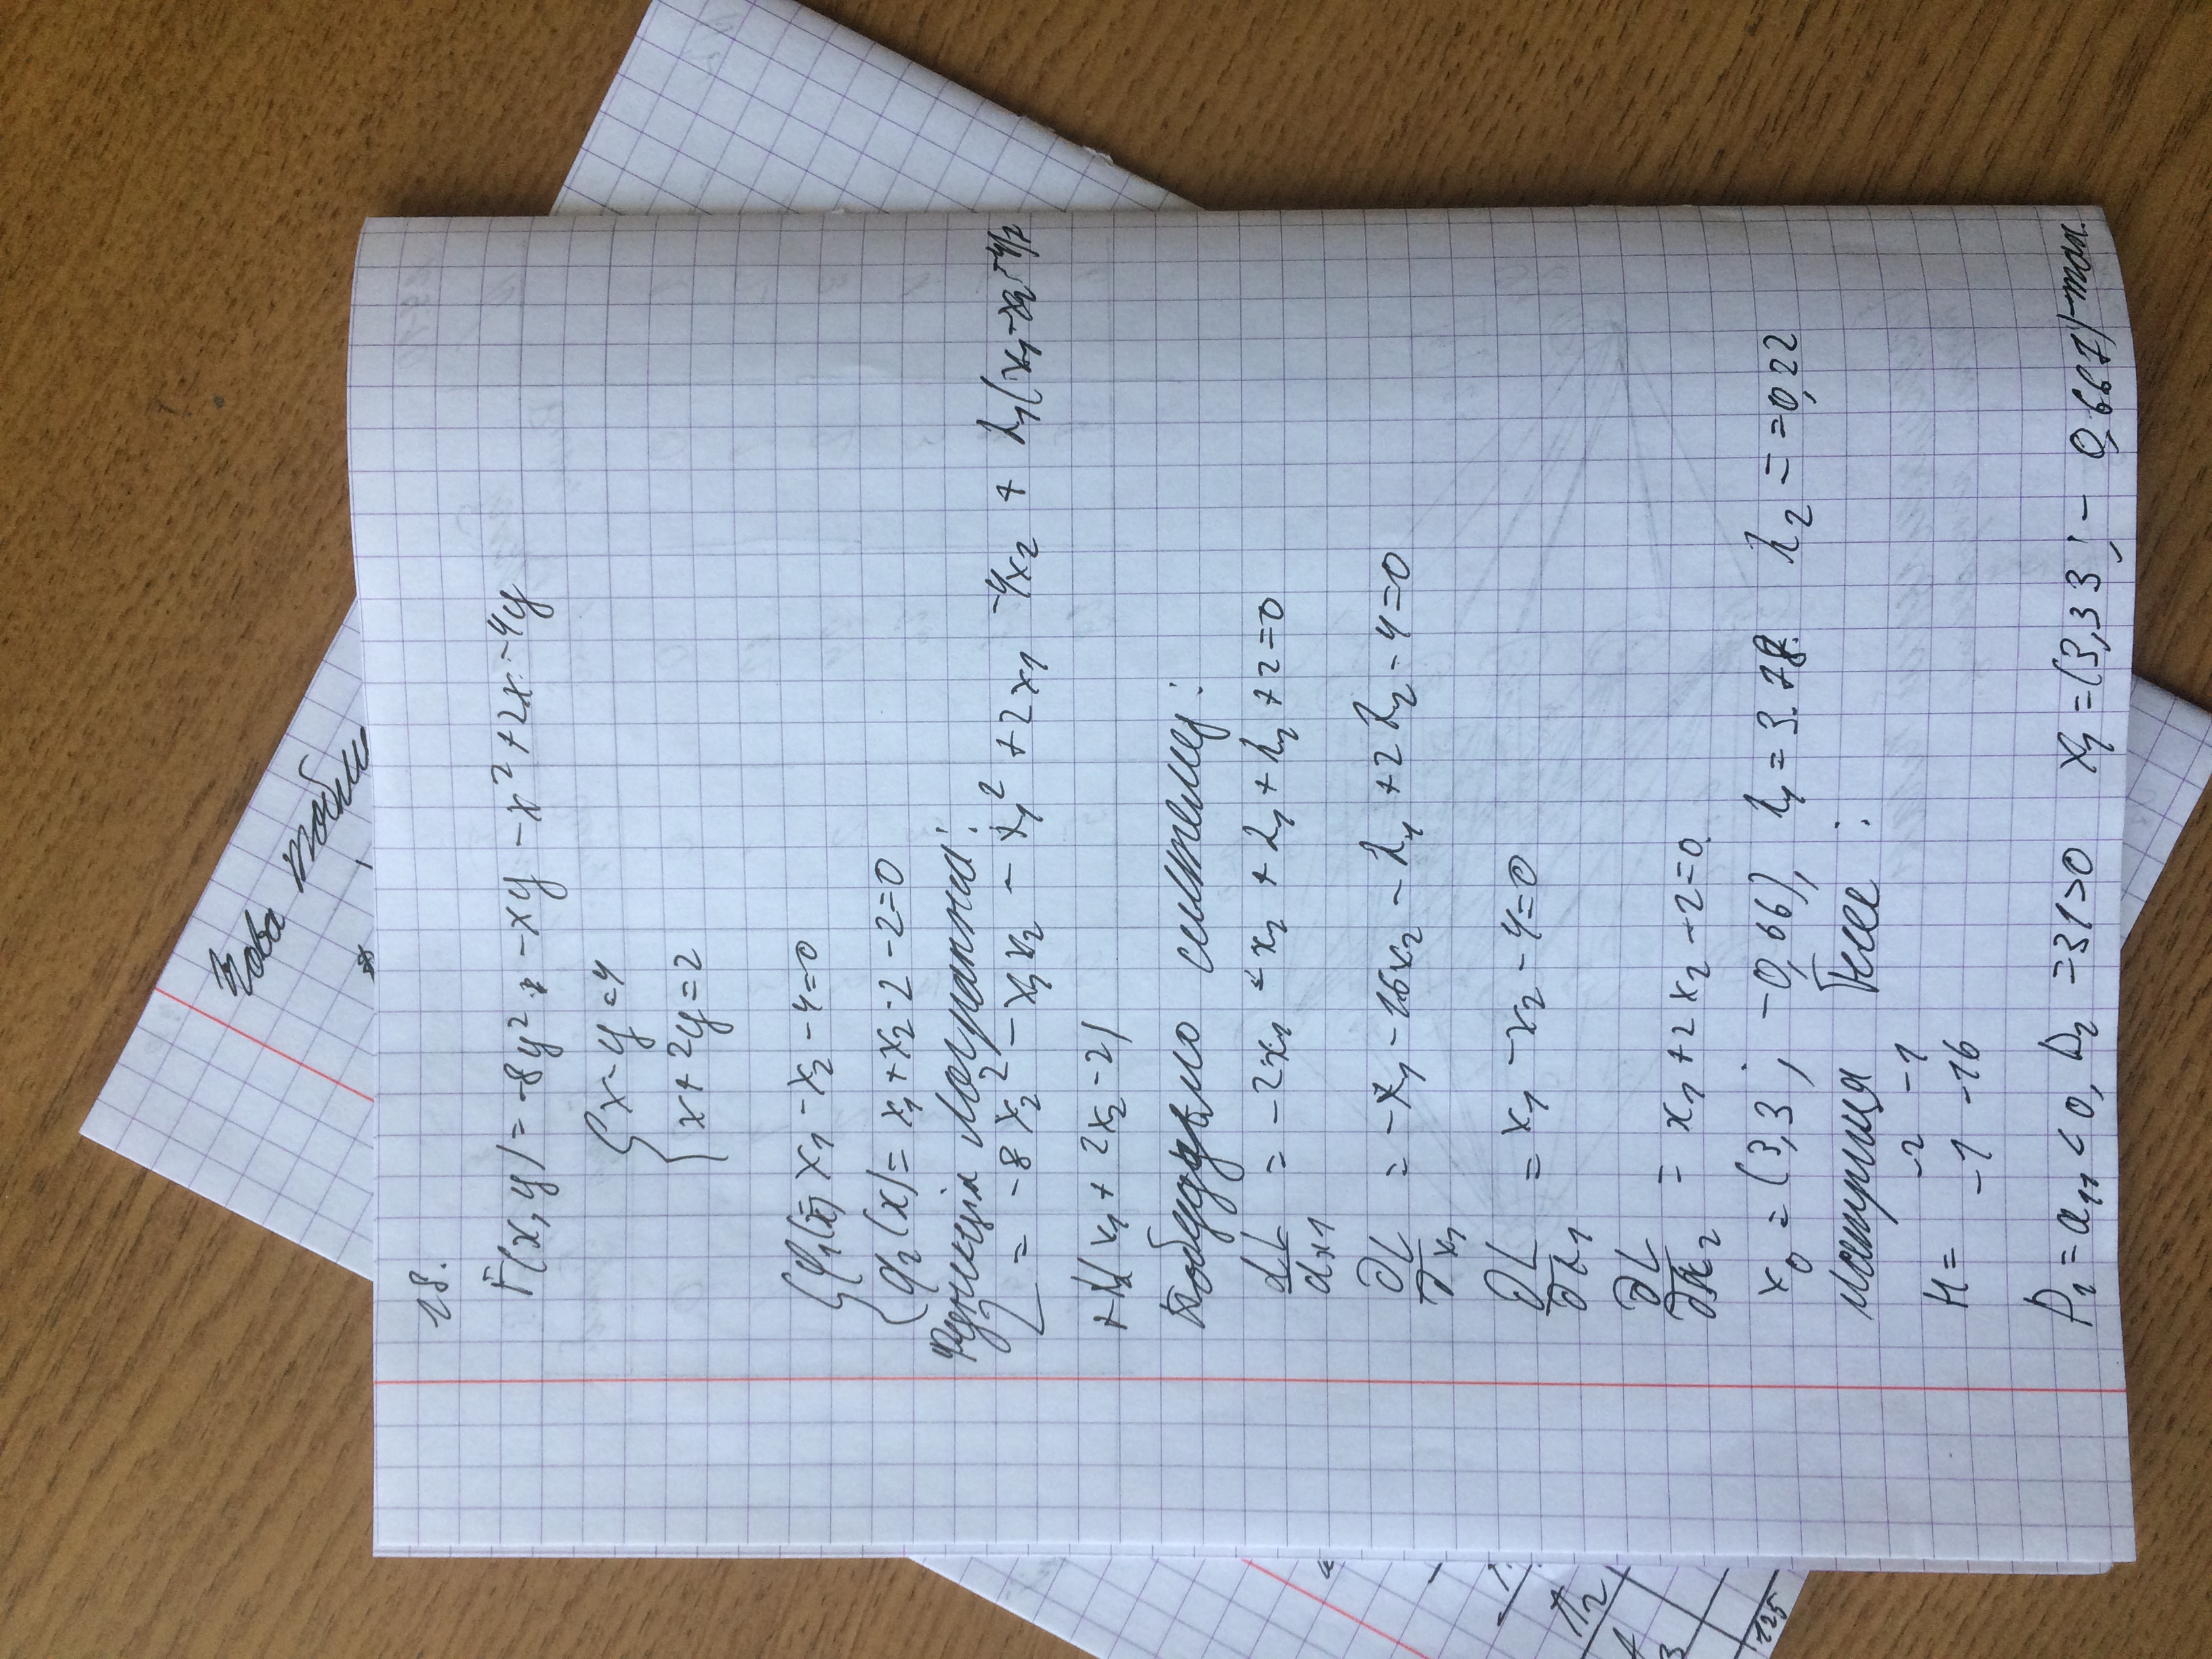 Нова таблиц
18.
F(x,y)= -8y² -xy -x² +2x -4y
x-y=4
x+2y=2
φ₁(x)= x₁ -x₂ -4=0
φ₂(x)= x₁+x₂·2 -2=0
Функція Лагранжа:
L = -8x₂² -x₁x₂ -x₁² +2x₁ -4x₂ + λ₁(x₁-x₂-4)+
+λ₂(x₁+2x₂-2)
Побудуємо систему:
dL/dx1 = -2x₁ -x₂ +λ₁+λ₂+2=0
∂L/∂x₁ = -x₁-16x₂-λ₁+2λ₂-4=0
∂L/∂λ₁ = x₁-x₂-4=0
∂L/∂λ₂ = x₁+2x₂-2=0
x₀ = (3,3 ; -0,66), λ₁=3.78 λ₂ = =0,22
Матриця Гессе :
-2 -1
H=
-1 -16
D₁=a₁₁<0, D₂=31>0 x₁=(3,33 ; -0,667)-max.
A₂
1
3
125